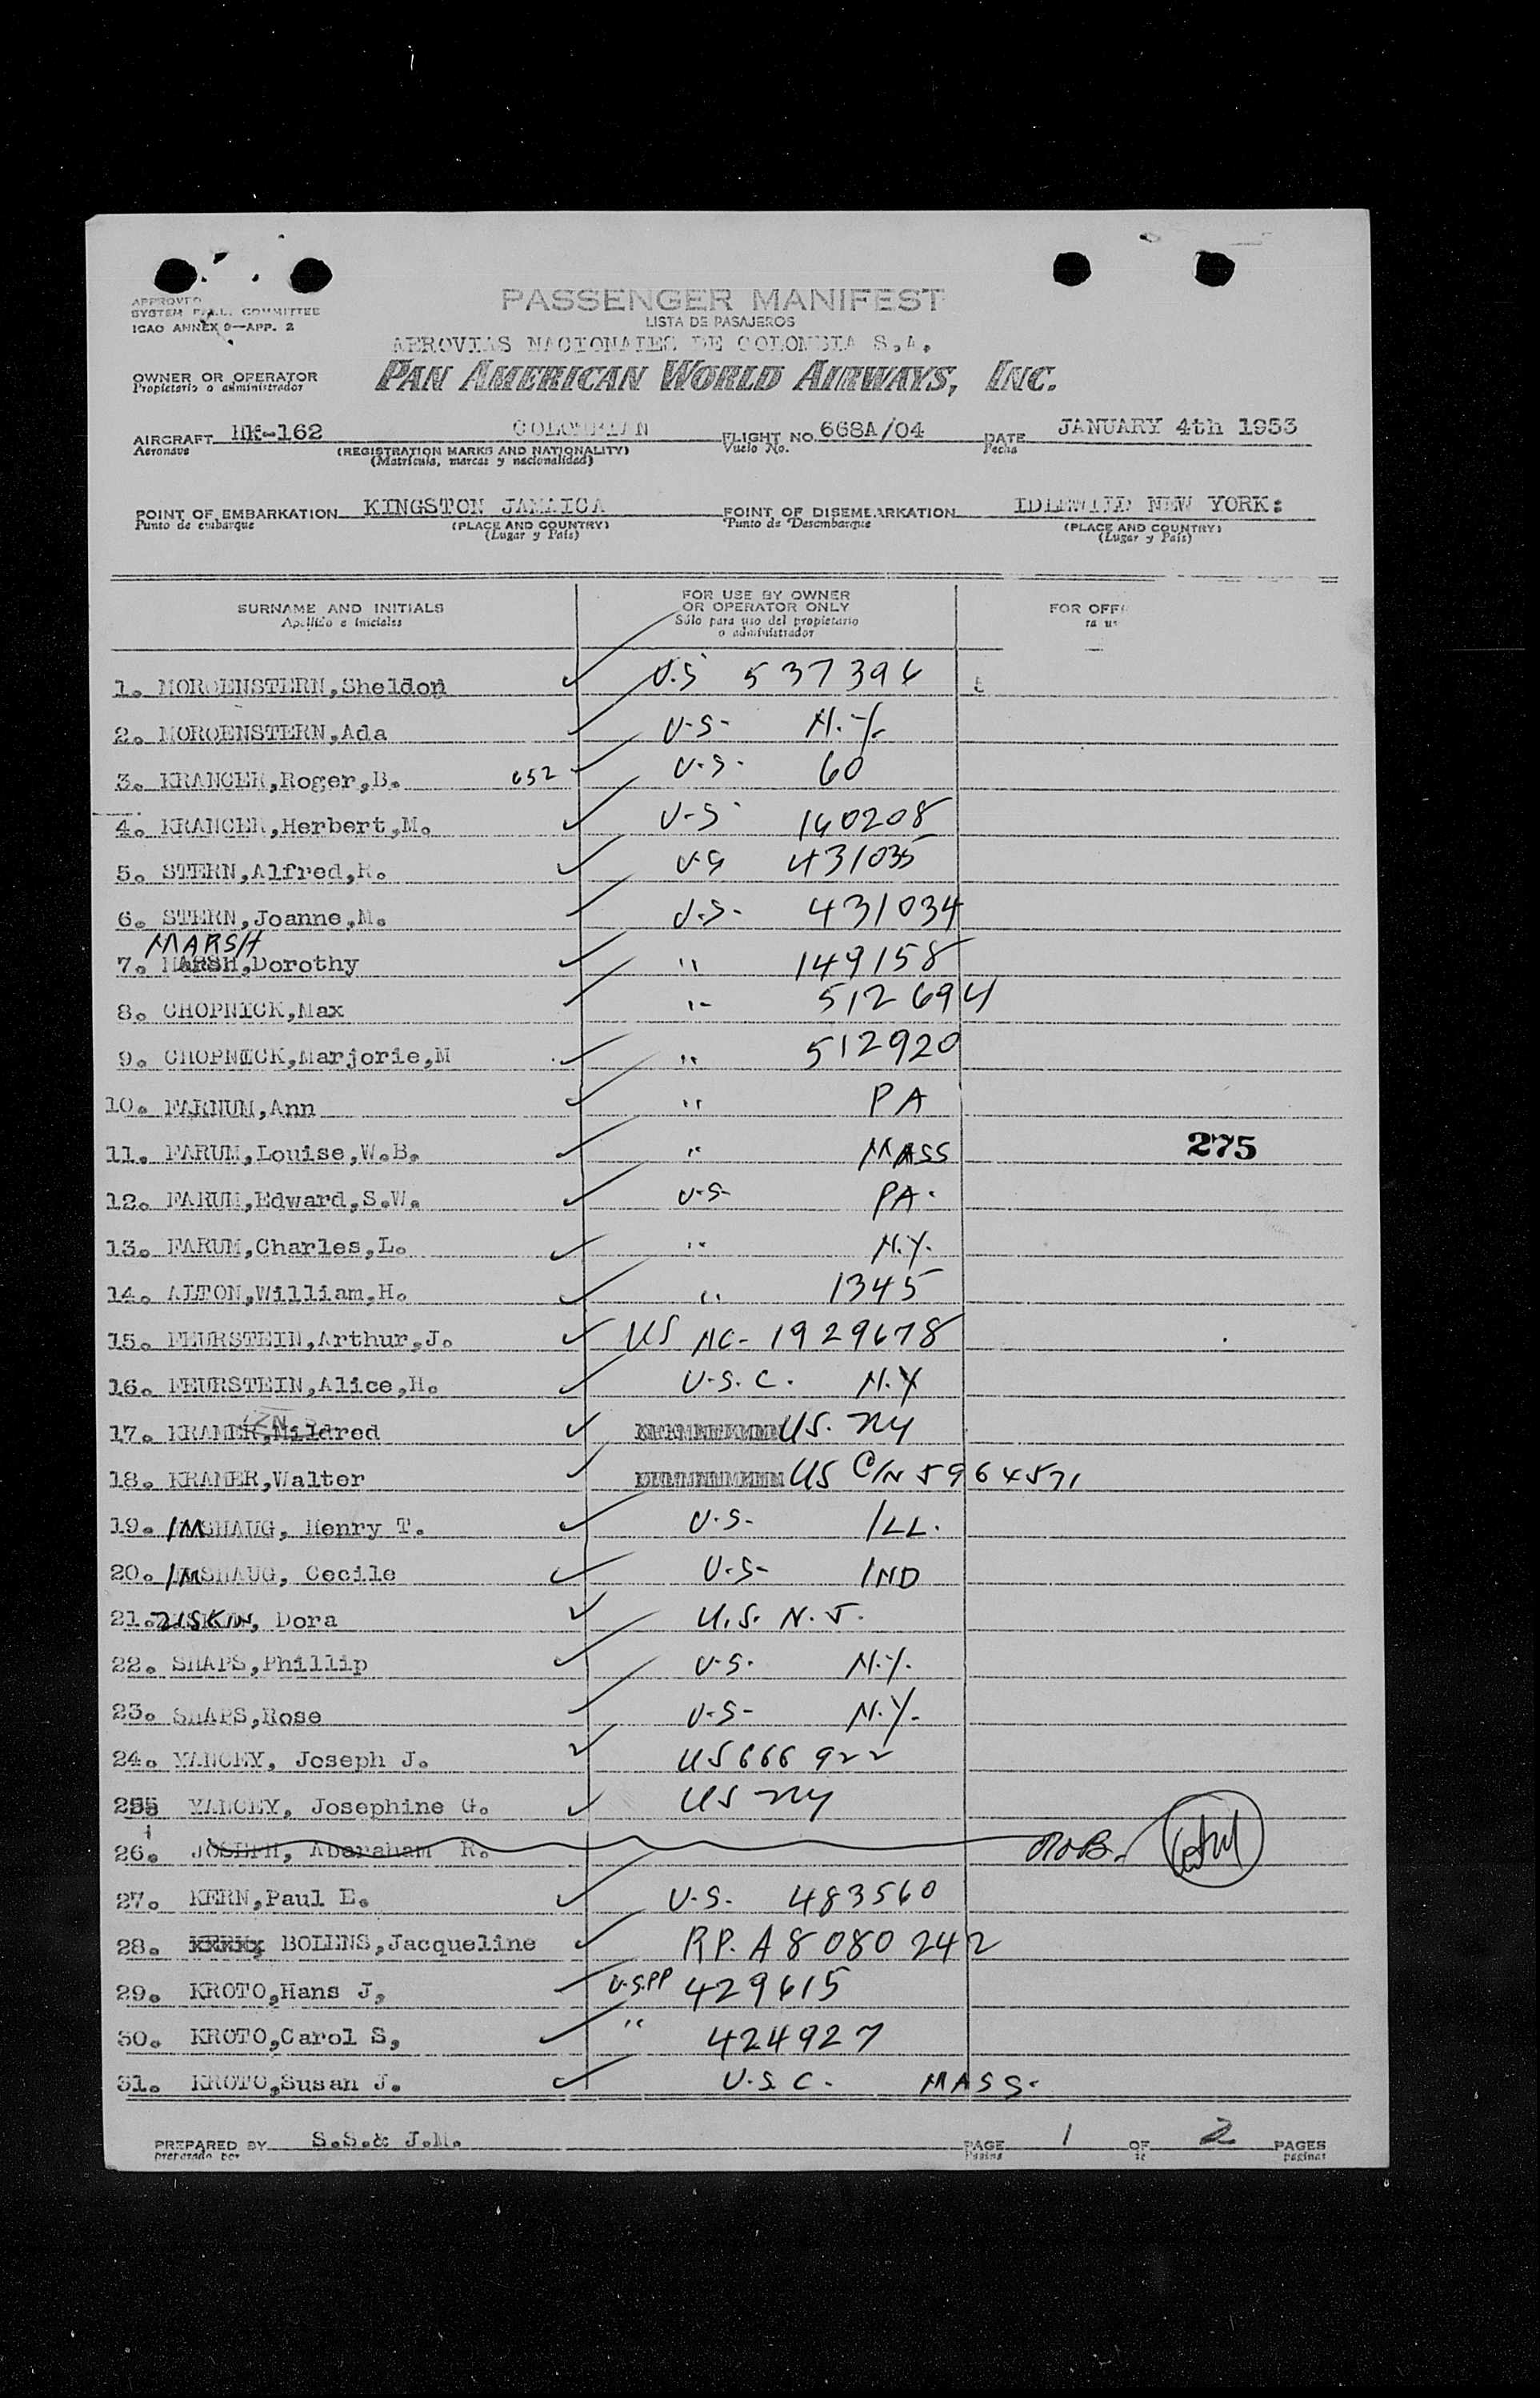 APPROVED
SYSTEM FAL. COMMITTEE
ICAO ANNEX 9—APP. 2
PASSENGER MANIFEST
LISTA DE PASAJEROS
AEROVIAS NACIONALES DE COLOMBIA S.A.
OWNER OR OPERATOR PAN AMERICAN WORLD AIRWAYS, INC.
Propietario o administrador
AIRCRAFT HK-162 COLOMBIAN FLIGHT NO. 668A/04 DATE JANUARY 4th 1953
Aeronave (REGISTRATION MARKS AND NATIONALITY) Vuelo No. Fecha
(Matrícula, marcas y nacionalidad)
POINT OF EMBARKATION KINGSTON JAMAICA POINT OF DISEMBARKATION IDLEWILD NEW YORK:
Punto de embarque (PLACE AND COUNTRY) Punto de Desembarque (PLACE AND COUNTRY)
(Lugar y País) (Lugar y País)
SURNAME AND INITIALS FOR USE BY OWNER OR OPERATOR ONLY FOR OFF
Apellido e iniciales Sólo para uso del propietario o administrador ra us
1. MORGENSTERN,Sheldon U.S 537396
2. MORGENSTERN,Ada U-S- N.Y.
3. KRANCER,Roger,B. 652 U.S. 60
4. KRANCER,Herbert,M. U-S 140208
5. STERN,Alfred,R. U.S 431035
6. STERN,Joanne,M. U.S- 431034
MARSH
7. MARSH,Dorothy " 149158
8. CHOPNICK,Max " 512694
9. CHOPNICK,Marjorie,M " 512920
10. FARNUM,Ann " PA
11. FARUM,Louise,W.B. " MASS
275
12. FARUM,Edward,S.W. U-S- PA.
13. FARUM,Charles,L. " N.Y.
14. ALTON,William,H. " 1345
15. FEURSTEIN,Arthur,J. US NC- 1929678
16. FEURSTEIN,Alice,H. U.S.C. N.Y
17. KRAMER,Mildred US. NY
18. KRAMER,Walter US C/N 5964571
19. IMSHAUG, Henry T. U.S- ILL.
20. IMSHAUG, Cecile U.S- IND
21. ZISKIN, Dora U.S. N.J.
22. SHAPS,Phillip U.S. N.Y.
23. SHAPS,Rose U-S- N.Y.
24. YANCEY, Joseph J. US 666922
25 YANCEY, Josephine G. US NY
26. JOSEPH, Abaraham R. N.O.B.
27. KERN,Paul E. U.S. 483560
28. xxxxx BOLENS,Jacqueline RP. A8080242
29. KROTO,Hans J, U.S.PP 429615
30. KROTO,Carol S, " 424927
31. KROTO,Susan J. U.S.C. MASS.
PREPARED BY S.S.& J.M. PAGE 1 OF 2 PAGES
preparado por Página de páginas